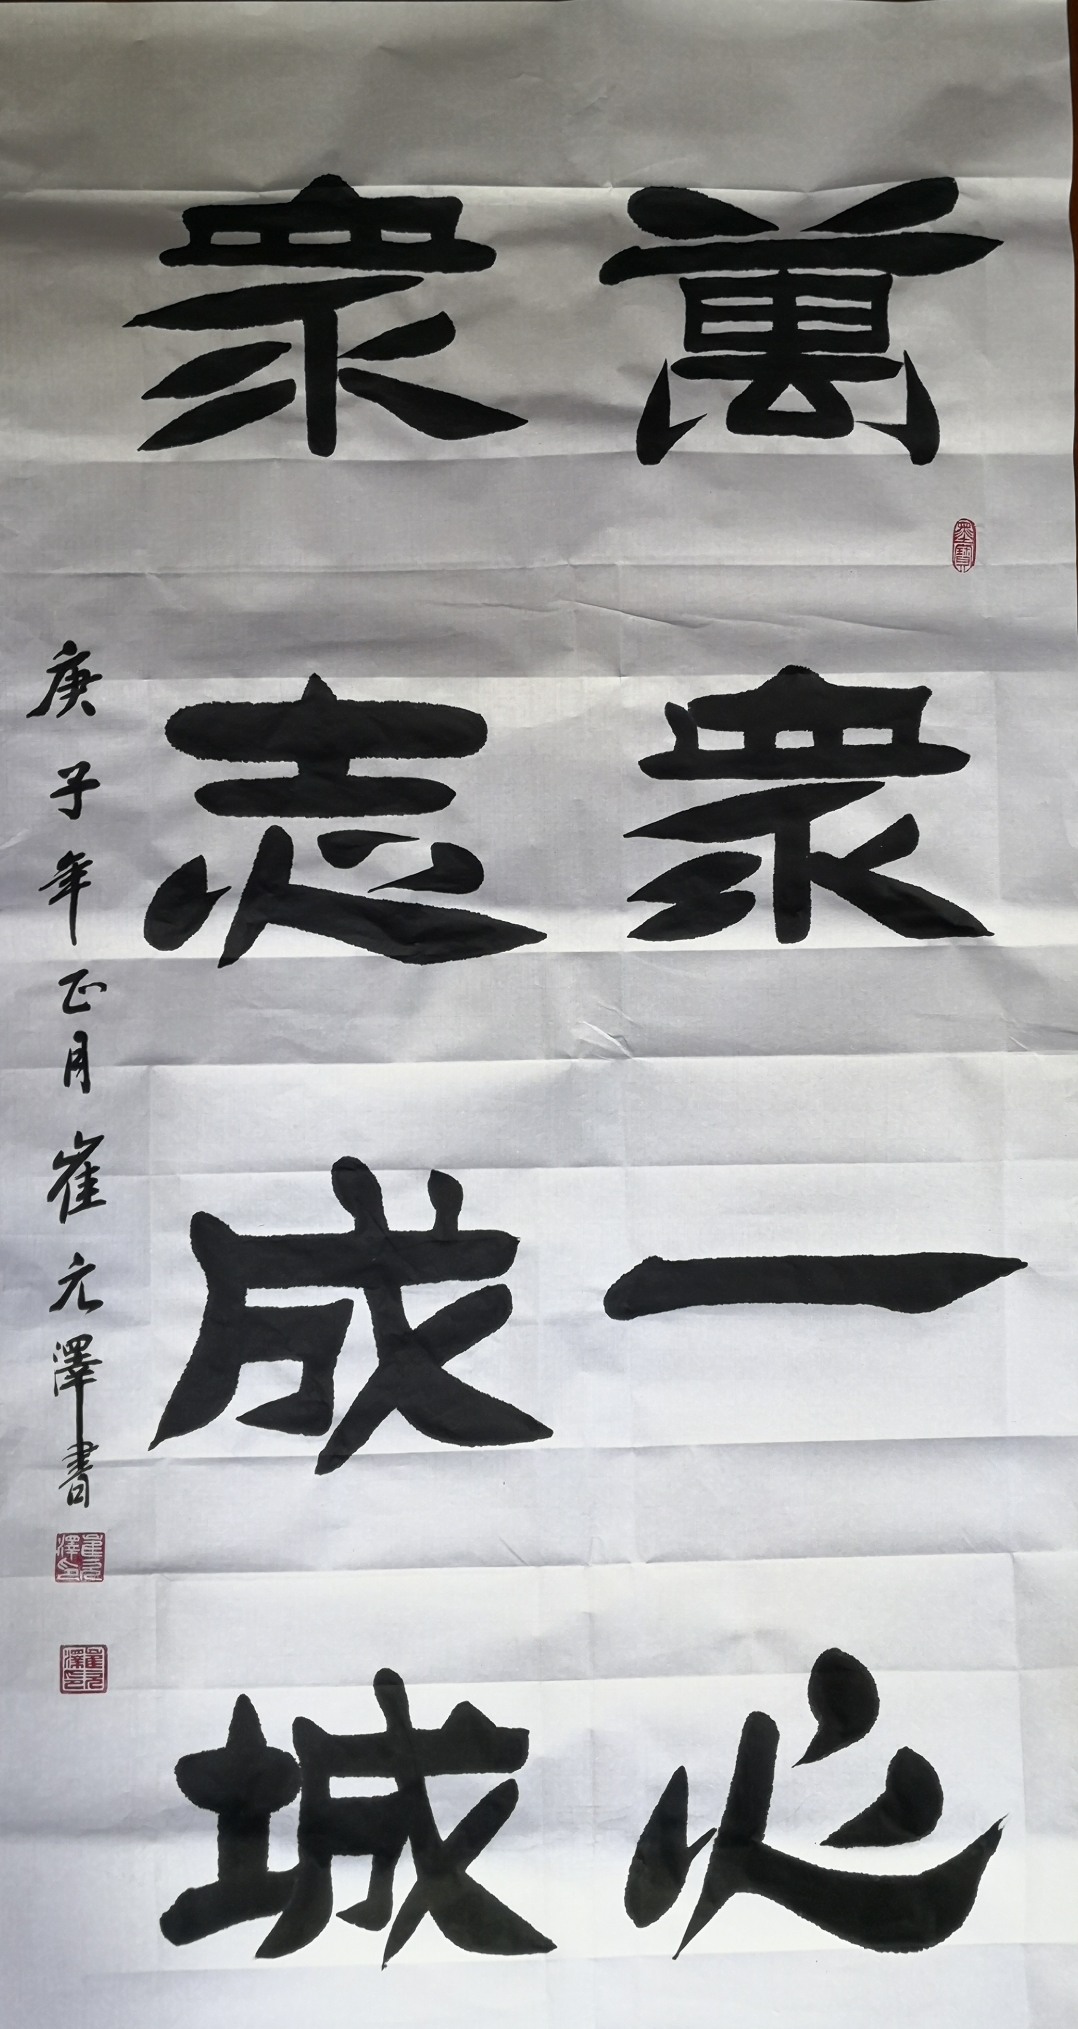 萬衆一心
衆志成城
庚子年正月崔元澤書